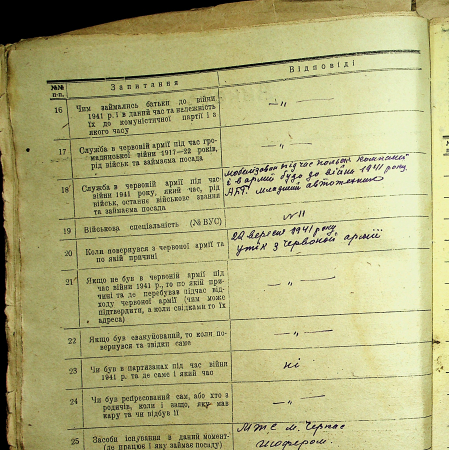 №№
п-п.
Запитання
Відповіді
16
Чим займались батьки до війни
1941 р., і в даний час та належність
їх до комуністичної партії і з
якого часу
— „ —
17
Служба в червоній армії під час гро-
мадянської війни 1917—22 років,
рід військ та займаєма посада
— „ —
18
Служба в червоній армії під час
війни 1941 року, який час, рід
військ, останнє військове звання
та займаєма посада
мобілізован під час польск. компанії
і в армії був до війни 1941 року.
Молодший автотехник
19
Військова спеціальність (№ ВУС)
№ 11
20
Коли повернувся з червоної армії та
по якій причині
22 вересня 1941 року
утік з червоної армії
21
Якщо не був в червоній армії під
час війни 1941 р., то по якій при-
чині та де перебував підчас від-
ходу червоної армії (чим може
підтвердити, а коли свідками то їх
адреса)
— „ —
22
Якщо був евакуйований, то коли по-
вернувся та звідки саме
— „ —
23
Чи був в партизанах під час війни
1941 р. та де саме і який час
ні
24
Чи був репресований сам, або хто з
родичів, коли і защо, яку мав
кару та чи відбув її
— „ —
25
Засоби існування в даний момент-
(де працює і яку займає посаду)
МЖС м. Черкас
шофером.